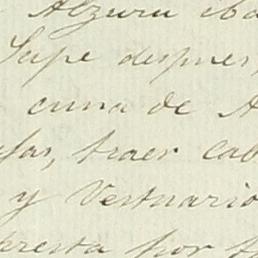 Alzuru iba
Supe despues,
cuna de A
sas, traer cab
y Vestuario
presta por t